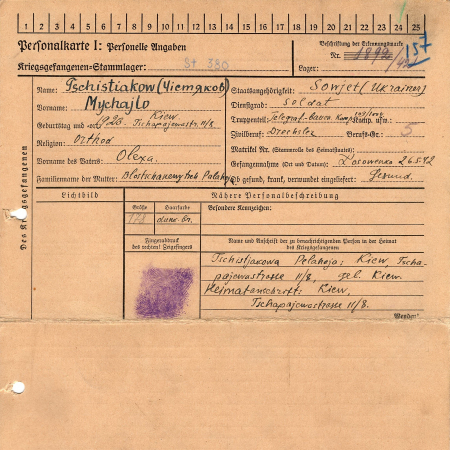 1 2 3 4 5 6 7 8 9 10 11 12 13 14 15 16 17 18 19 20 21 22 23 24 25
Personalkarte I: Personelle Angaben
Kriegsgefangenen-Stammlager: St 380
Beschriftung der Erkennungsmarke
Nr. 157
Lager:
Des Kriegsgefangenen
Name: Tschistiakow (Чістяков)
Vorname: Mychajlo
Geburtstag und -ort: 1923. Kiew
Tschapajewastr. 11/8.
Religion: Orthod
Vorname des Vaters: Olexa.
Familienname der Mutter:
Staatsangehörigkeit: Sowjet (Ukrainer)
Dienstgrad: Soldat
Truppenteil: Telegraf- Komp. usw.:
Zivilberuf: Drechsler Berufs-Gr.: 5
Matrikel Nr. (Stammrolle des Heimatstaates):
Gefangennahme (Ort und Datum): Losowenka 26.5.42
Ob gesund, krank, verwundet eingeliefert: Gesund.
Lichtbild
Nähere Personalbeschreibung
Größe Haarfarbe Besondere Kennzeichen:
Fingerabdruck
des rechten! Zeigefingers
Name und Anschrift der zu benachrichtigenden Person in der Heimat
des Kriegsgefangenen
Tschistjakowa Pelaheja: Kiew Tscha-
pajewastrasse 11/8, Kiew.
Heimatanschrift: Kiew,
Tschapajewastrasse 11/8.
Wenden!